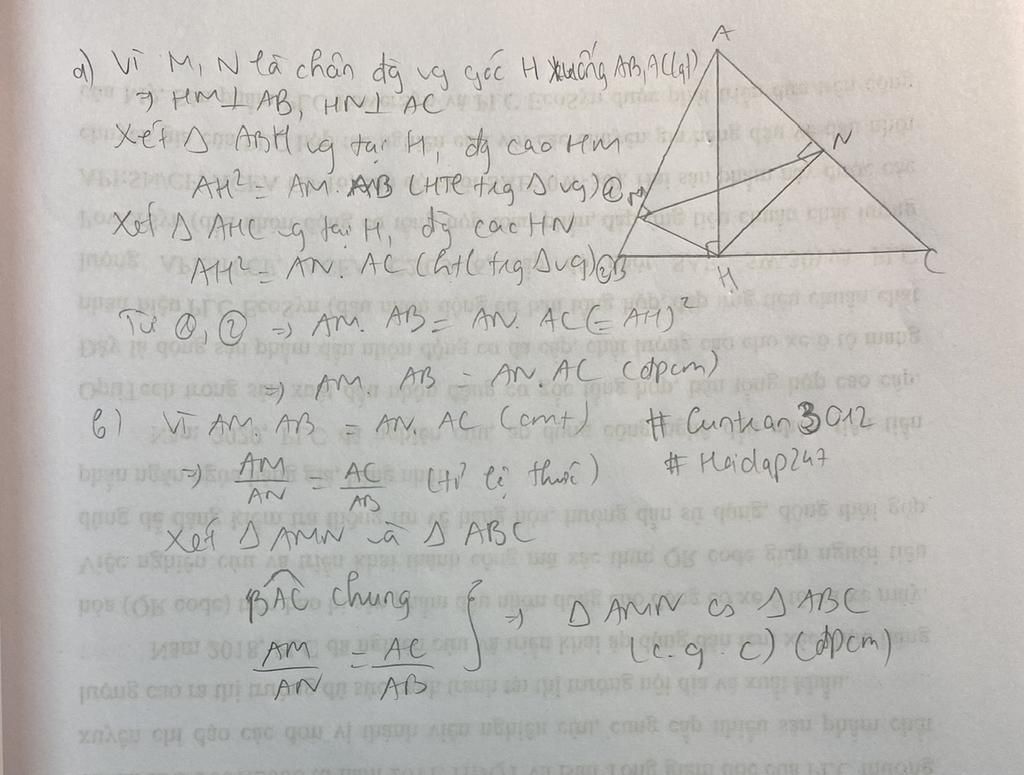 a) Vì M, N là chân đg vg góc H xuống AB, AC(gt)
⇒ HM⊥AB, HN⊥AC
Xét Δ ABH vg tại H, đg cao HM
AH² = AM. AB (HTL trg Δ vg) ①
Xét Δ AHC vg tại H, đg cao HN
AH² = AN. AC (htl trg Δ vg) ②
Từ ①, ② ⇒ AM. AB = AN. AC (= AH)²
⇒ AM. AB = AN. AC (đpcm)
b) Vì AM. AB = AN. AC (cmt)
⇒ AM/AN = AC/AB (tỉ lệ thức)
Xét Δ AMN và Δ ABC
BAC chung
AM/AN = AC/AB } ⇒ Δ AMN ∽ Δ ABC
(c-g-c) (đpcm)
#3012
#Hoidap247
A
N
M
B
H
C